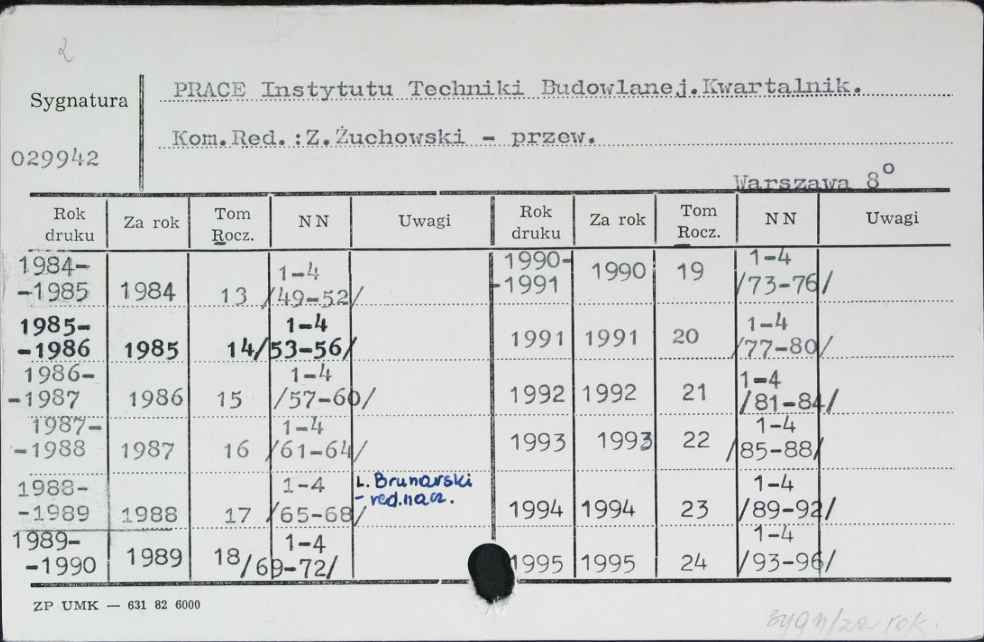 2
Sygnatura
029942
PRACE Instytutu Techniki Budowlanej.Kwartalnik.
Kom.Red.:Z.Żuchowski - przew.
Warszawa 8°
Rok druku Za rok Tom Rocz. NN Uwagi Rok druku Za rok Tom Rocz. NN Uwagi
1984-
-1985 1984 13 1-4 /49-52/
1985-
-1986 1985 14 1-4 /53-56/
1986-
-1987 1986 15 1-4 /57-60/
1987-
-1988 1987 16 1-4 /61-64/
1988-
-1989 1988 17 1-4 /65-68/ L. Brunarski - red.nacz.
1989-
-1990 1989 18 1-4 /69-72/
1990-
-1991 1990 19 1-4 /73-76/
1991 1991 20 1-4 /77-80/
1992 1992 21 1-4 /81-84/
1993 1993 22 1-4 /85-88/
1994 1994 23 1-4 /89-92/
1995 1995 24 1-4 /93-96/
ZP UMK — 631 82 6000
za rok.